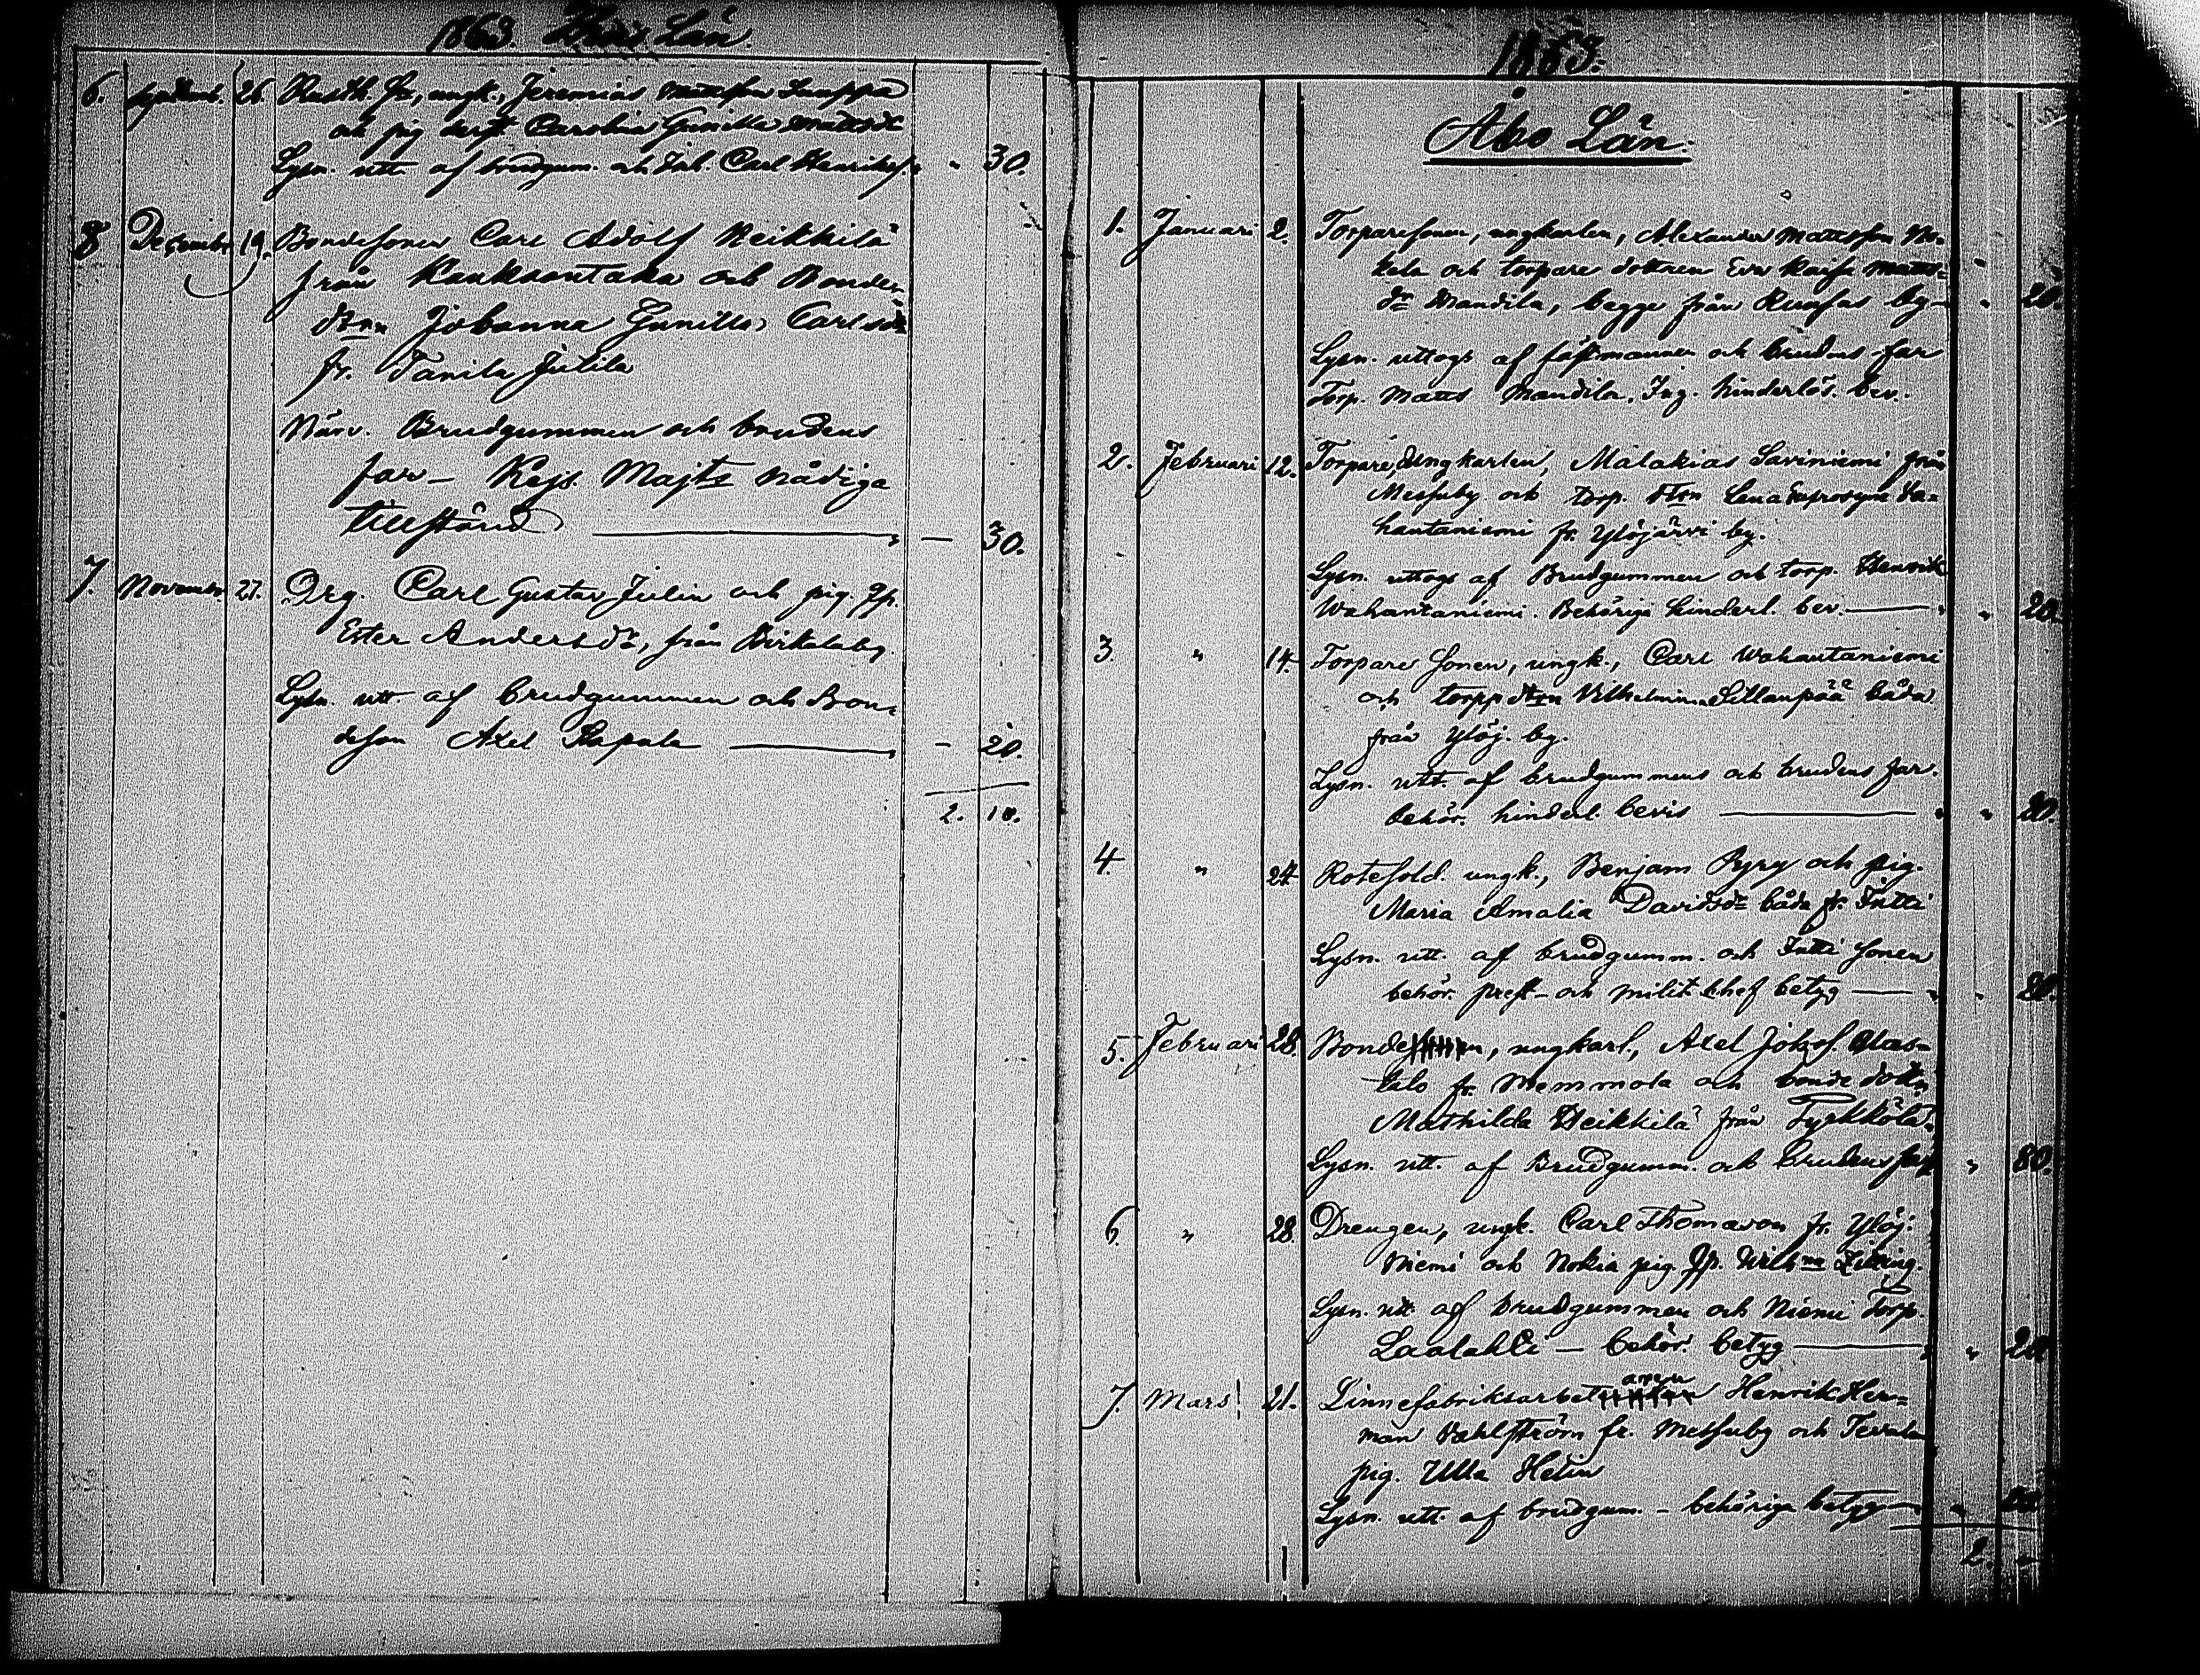 1863. Län.
6. Septemb. 26. Rusth. Sn, ungk., Jeremias Mattsson Lauppa
och pig. Carolina Gunilla Mattsdr
Lysn. utt. af brudgum. och Inh. Carl Henrikss. " 30.
8 December 19. Bondesonen Carl Adolf Heikkilä
från Kauksontaka och Bonde
dtrn Johanna Gunilla Carlsdr
fr. Tanila Jutila
Närv. Brudgummen och brudens
far – Kejs. Majts nådiga
tillstånd — 30.
7. Novembr. 27. Drg. Carl Gustav Julin och pig. Qp.
Ester Andersdr, från Birkalaby.
Lysn. utt. af brudgummen och Bon-
deson Axel Kapala — 20.
2. 10.
1863.
Åbo Län.
1. Januari 2. Torparesonen, ungkarlen, Alexander Mattsson No-
kela och torpare dottren Eva Kaisa Matts-
dr Mandila, begge från Reufas by – " 20.
Lysn. uttogs af fästmannen och brudens far
Torp. Matts Mandila. Ing. hinderlös. bev.
2. Februari 12. Torpare, Ungkarlen, Malakias Saviniemi från
Messuby och torp. dtrn Lena Eufrosyne Va-
hantaniemi fr. Ylöjärvi by.
Lysn. uttogs af Brudgummen och torp. Henrik
Wahantaniemi. Behöriga hinderl. bev. — " 20.
3. " 14. Torpare Sonen, ungk., Carl Wahantaniemi
och torpp dtrn Vilhelmina Sillanpää båda
från Ylöj. by.
Lysn. utt. af brudgummens och brudens far.
behör. hinderl. bevis — " 20.
4. " 24 Rotesold. ungk., Benjam Pyry och pig.
Maria Amalia Davidsdr båda fr. Tutti
Lysn. utt. af brudgumm. och Tutti Sonen
behör. prest- och milit. chef betyg — " 20.
5. Februari 28. Bonde, ungkarl, Axel Johsf. Was-
kalo fr. Memmola och bonde dottn
Mathilda Heikkilä från Tyrkkölä.
Lysn. utt. af Brudgumm. och brudens far " 80.
6. " 28. Drengen, ungk. Carl Thomason fr. Ylöj:
Niemi och Nokia pig. Qp. Wilhna
Lysn. utt. af brudgummen och Niemi Torp.
Laalahti – behör. betyg — " 20
7. Mars 21. Linnefabriksarbetaren Henrik Her-
man Vahlström fr. Messuby och
pig. Ulla Helin
Lysn. utt. af brudgum. – behöriga betyg — "
2. –